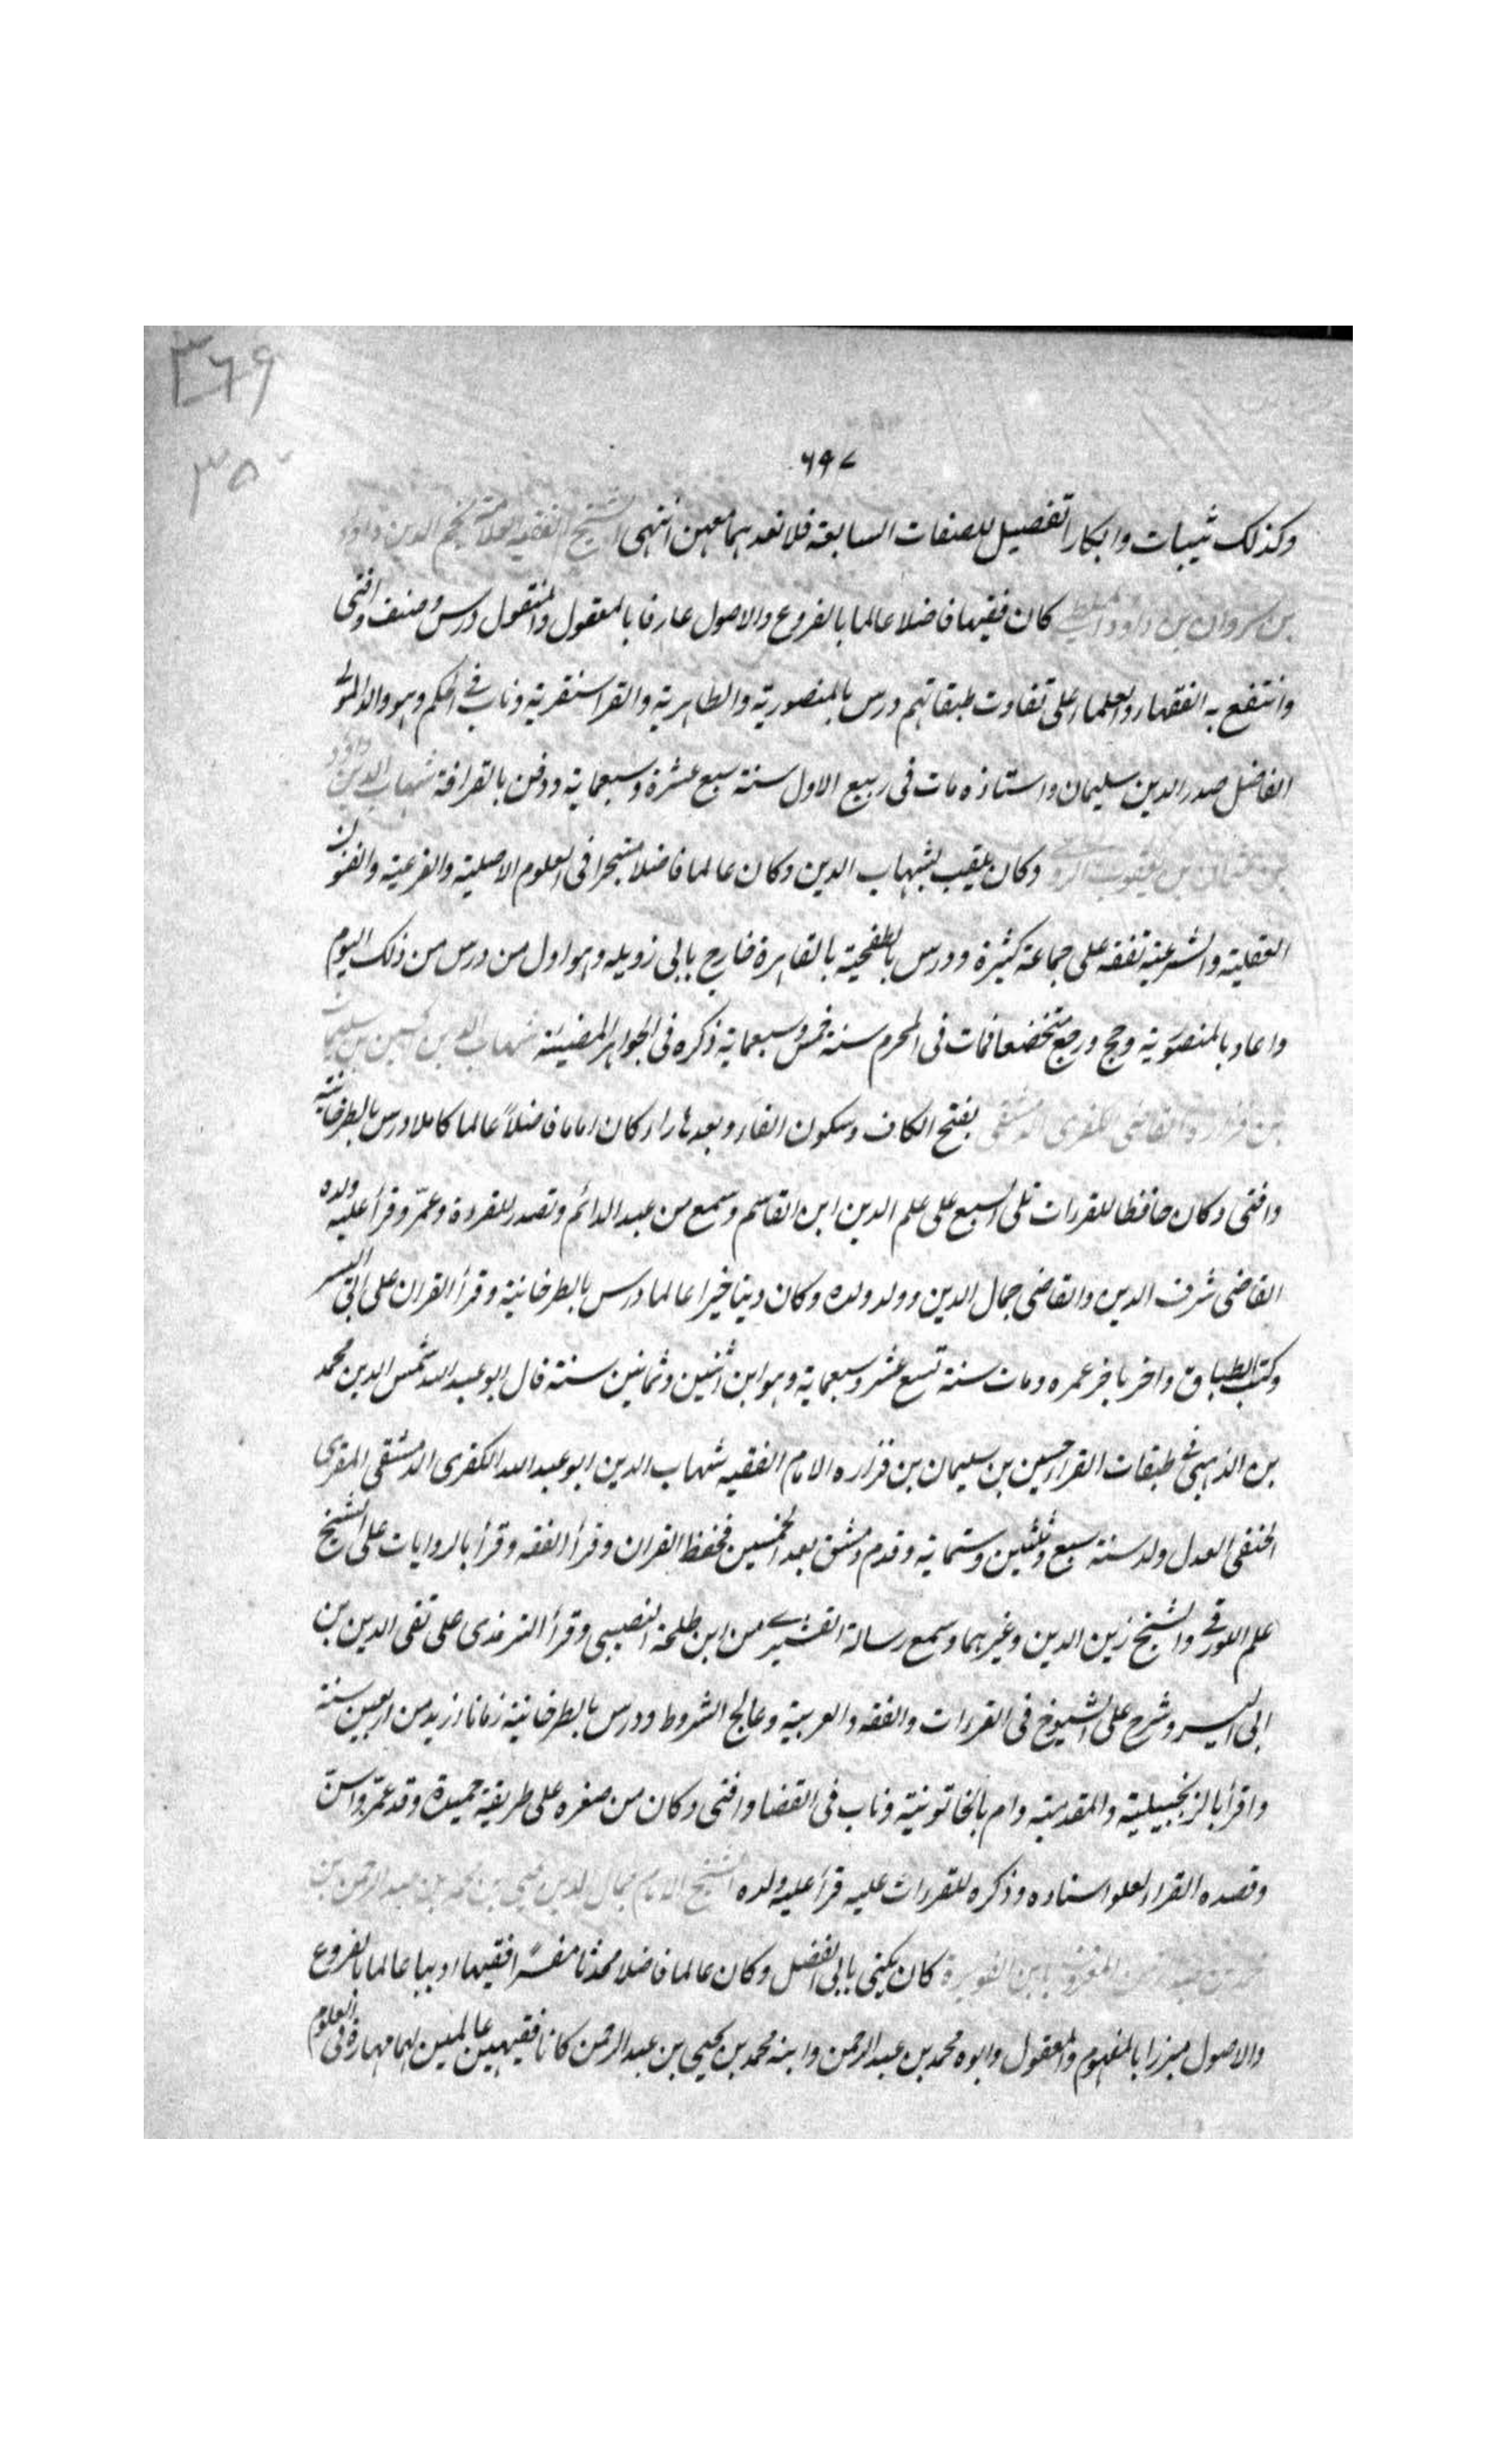 ٣٦٩
٣٥٠
٦٩٧
وكذلك ثيبات وابكارا تفصيل للصفات السابقة فلا تعدهما معهن انتهى الشيخ الفقيه العلامة نجم الدين داود
بن مروان بن داود الملطي كان فقيها فاضلا عالما بالفروع والاصول عارفا بالمعقول والمنقول درس وصنف وافتى
وانتفع به الفقهاء والعلماء على تفاوت طبقاتهم درس بالمنصورية والظاهرية والقراسنقرية وناب في الحكم وهو والد المولى
الفاضل صدر الدين سليمان واستاذه مات فى ربيع الاول سنة سبع عشرة وسبعماية ودفن بالقرافة شهاب الدين داود
بن عثمان بن يعقوب الرومي وكان يلقب بشهاب الدين وكان عالما فاضلا متبحرا فى العلوم الاصلية والفرعية والفنون
العقلية والشرعية تفقه على جماعة كثيرة ودرس بالطفجية بالقاهرة خارج بابى زويله وهو اول من درس من ذلك اليوم
واعاد بالمنصورية وحج ورجع متخضعا فمات فى المحرم سنة خمس وسبعماية ذكره فى الجواهر المضيئة شهاب الدين حسين بن سليمان
بن فزارة القاضى المقرى الدمشقى بفتح الكاف وسكون الفاء وبعدها راء كان اماما فاضلاً عالما كاملا درس بالطرخانية
وافتى وكان حافظا للقراءت تلى السبع على علم الدين ابن القاسم وسمع من عبد الدائم وتصدر للقروة وعمّر وقرأ عليه ولده
القاضى شرف الدين والقاضى جمال الدين وولد ولده وكان دينا خيرا عالما درس بالطرخانية وقرأ القران على ابى اليسر
وكتب الطباق واخر باخر عمره ومات سنة تسع عشر وسبعماية وهو ابن اثنين وثمانين سنة قال ابو عبد الله شمس الدين محمد
بن الذهبى فى طبقات القراء حسين بن سليمان بن فزاره الامام الفقيه شهاب الدين ابو عبد الله الكفرى الدمشقى المقرى
الحنفى العدل ولد سنة سبع وثلثين وستماية وقدم دمشق بعد الخمسين فحفظ القران وقرأ الفقه وقرأ بالروايات على الشيخ
علم اللورقى والشيخ زين الدين وغيرهما وسمع رسالة القشيرى من ابن طلحة النصيبى وقرأ الترمذى على تقى الدين بن
ابى اليسر وشرح على الشيوخ فى القراءت والفقه والعربية وعالج الشروط ودرس بالطرخانية زمانا ازيد من اربعين سنة
واقرأ بالزنجيلية والمقدمية وام بالخاتونية وناب فى القضا وافتى وكان من صغره على طريقة حميدة وقد عمّر واسن
وقصده القراء لعلو اسناده وذكره للقراءت عليه قرأ عليه ولده الشيخ الامام جمال الدين يحيى بن محمد بن عبد الرحمن بن
محمد بن عبد الرحمن المعروف بابن الفويرة كان يكنى بابى الفضل وكان عالما فاضلا محدثا مفسرًا فقيها اديبا عالما بالفروع
والاصول مبرزا بالمفهوم والمعقول وابوه محمد بن عبد الرحمن وابنه محمد بن يحيى بن عبد الرحمن كانا فقيهين عالمين لهما مهارة فى العلوم